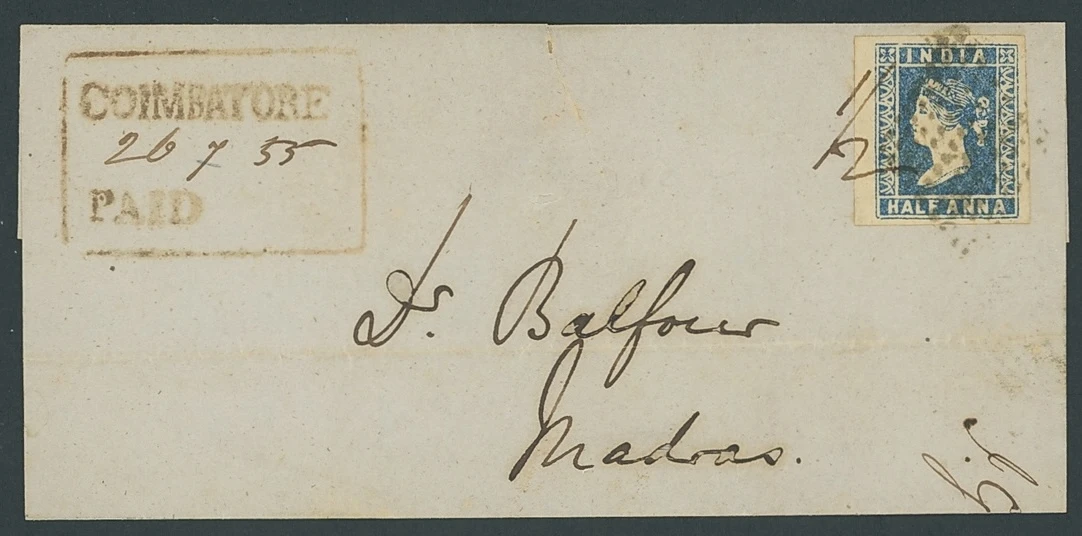 COIMBATORE
26 7 55
PAID
1/2
INDIA
HALF ANNA
Dr. Balfour
Madras.